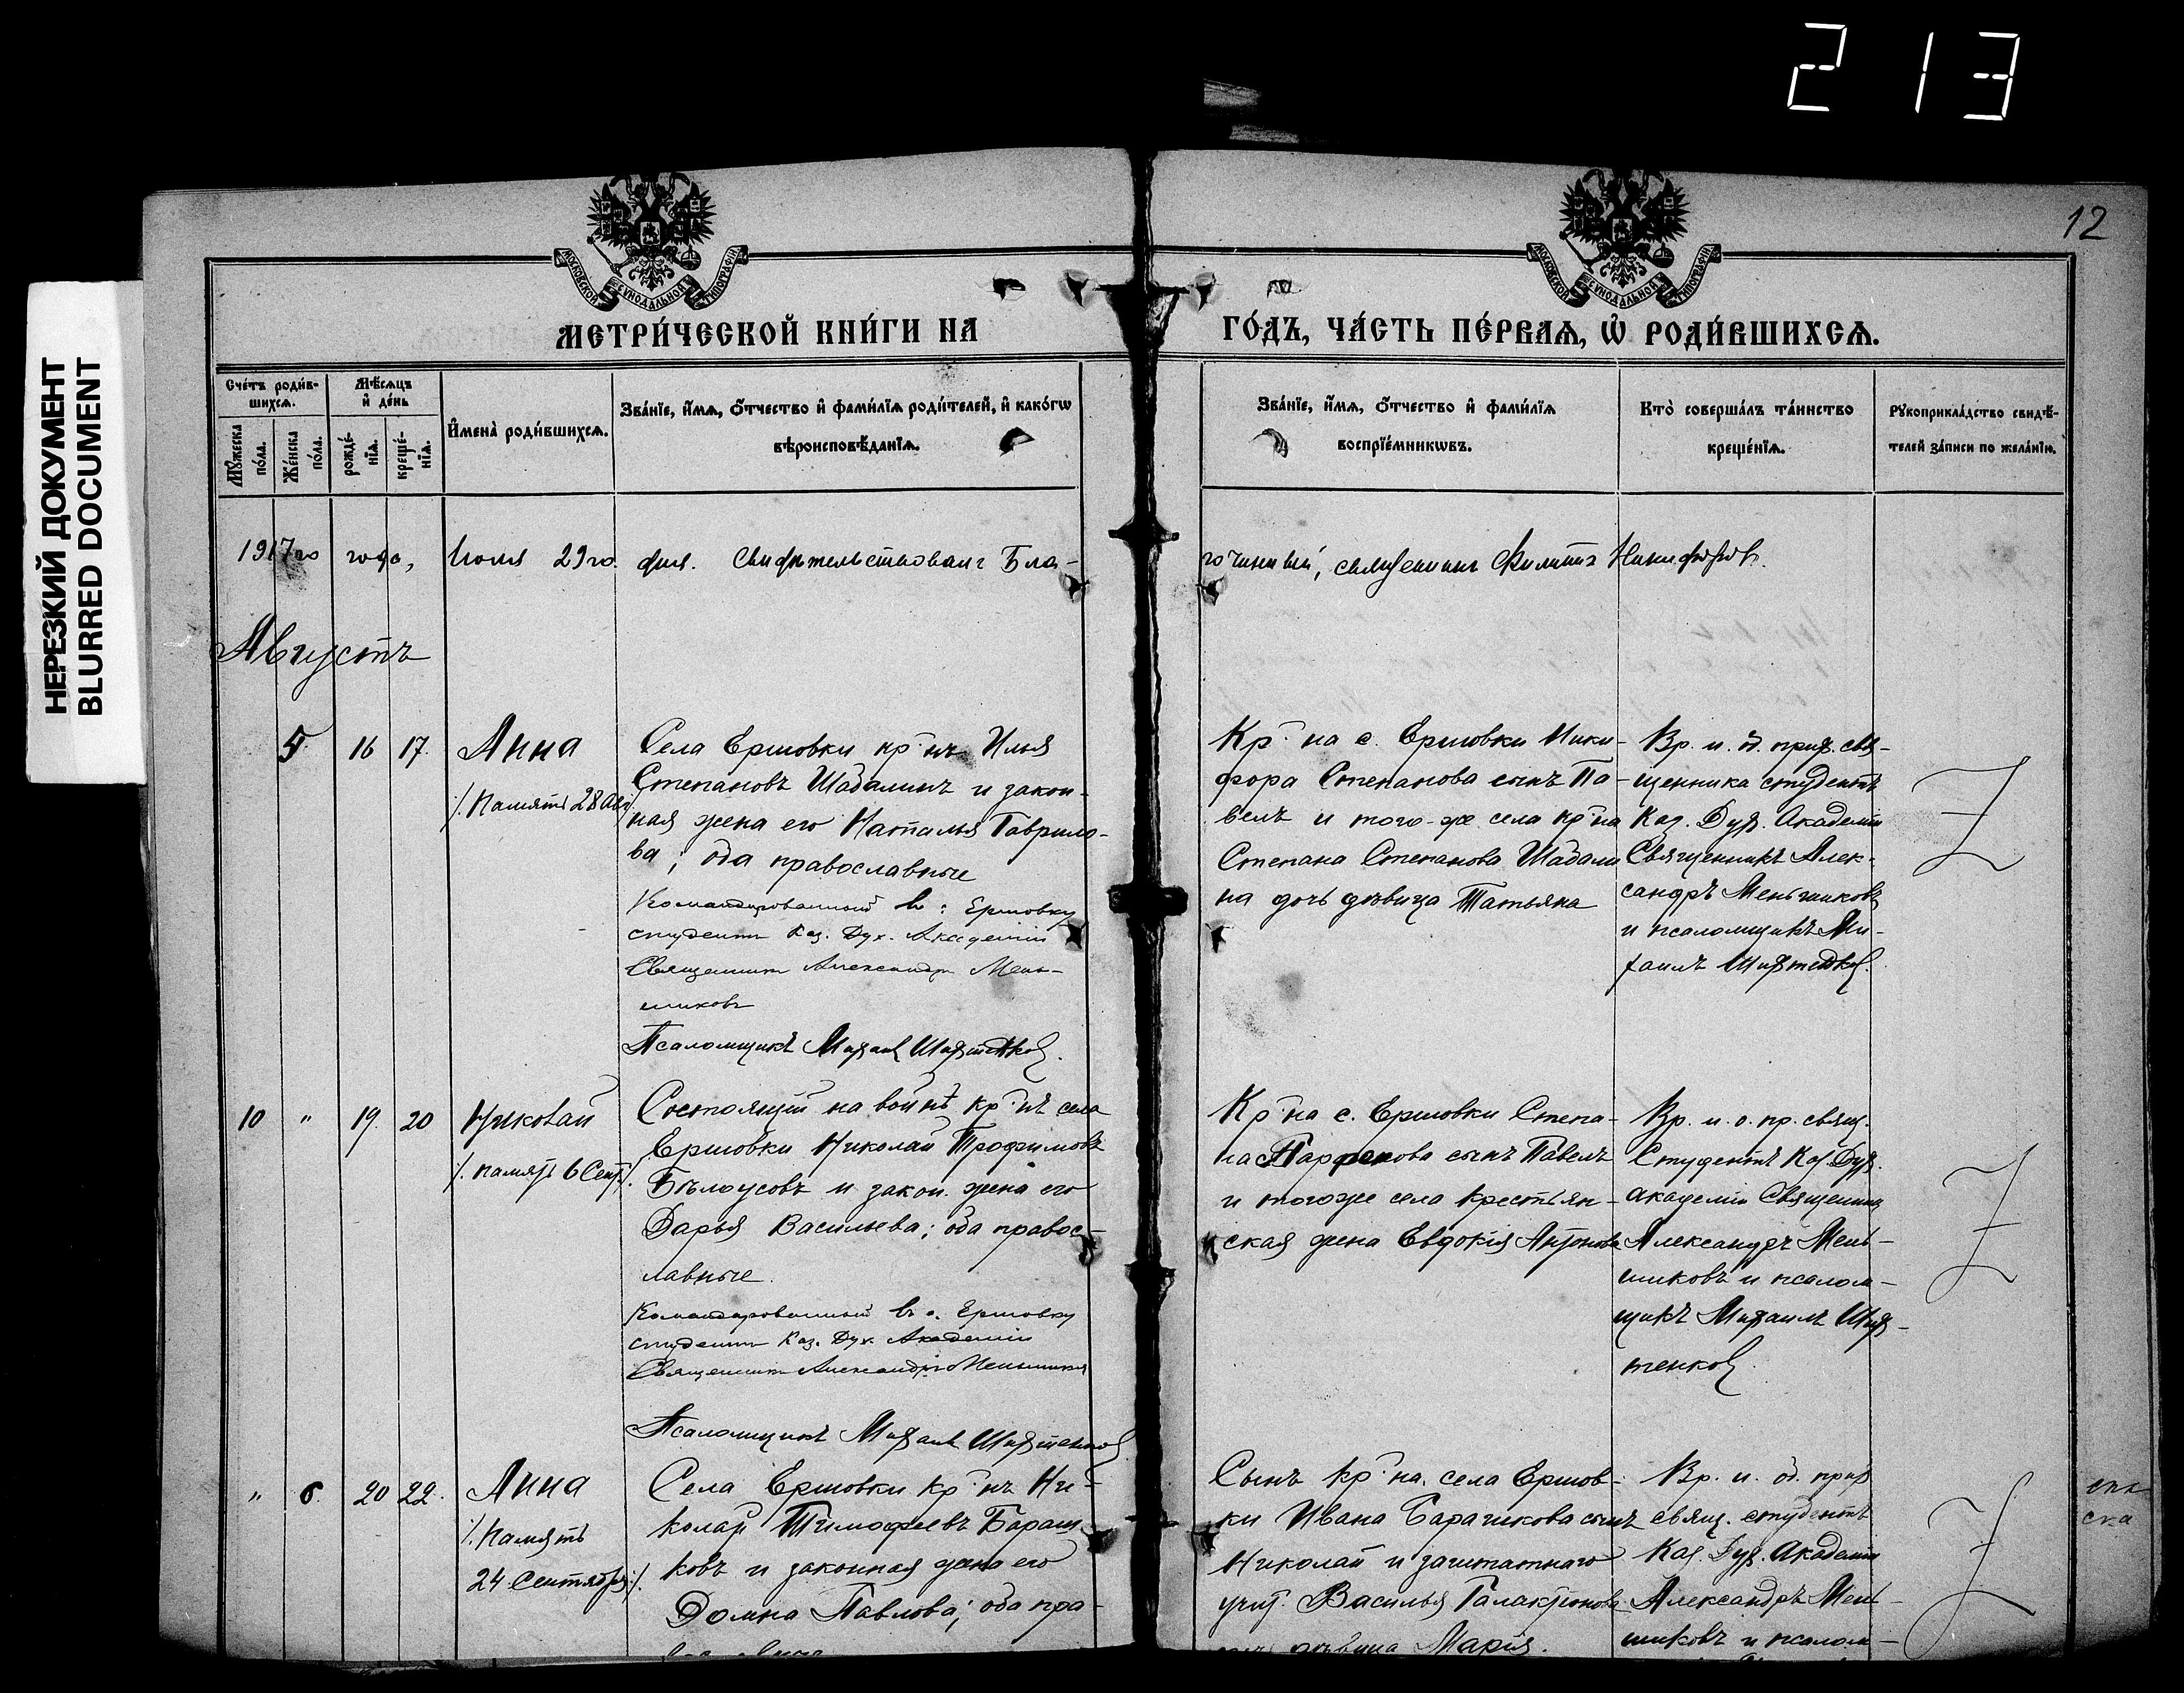 213
12
НЕРЕЗКИЙ ДОКУМЕНТ
BLURRED DOCUMENT
МОСКОВСКОЙ СѴНОДАЛЬНОЙ ТИПОГРАФІИ
МОСКОВСКОЙ СѴНОДАЛЬНОЙ ТИПОГРАФІИ
МЕТРИ́ЧЕСКОЙ КНИ́ГИ НА ГО́ДЪ, ЧА́СТЬ ПЕ́РВАѦ, Ѡ҆ РОДИ́ВШИХСѦ.
Сче́тъ роди́в-
шихсѧ.
Мꙋ́жеска
по́ла.
Же́нска
по́ла.
Мѣ́сѧцъ
и҆ де́нь
рожде́-
нїѧ.
креще́-
нїѧ.
И҆мена̀ роди́вшихсѧ.
Зва́нїе, и҆́мѧ, ѻ҆́тчество и҆ фами́лїѧ роди́телей, и҆ како́гѡ
вѣроисповѣ́данїѧ.
Зва́нїе, и҆́мѧ, ѻ҆́тчество и҆ фами́лїѧ
воспрїе́мникѡвъ.
Кто̀ соверша́лъ та́инство
креще́нїѧ.
Рꙋкоприкла́дство свидѣ́-
телей за́писи по жела́нїю.
1917го года, Іюля 29го дня. Свидѣтельствовалъ Бла-
гочинный, священникъ Филиппъ Никифоровъ.
Августъ
5 16 17. Анна
/. Память 28 Авг ./
Села Ершовки кр-нъ Илья
Степановъ Шадалинъ и закон-
ная жена его Наталья Гаврило-
ва; оба православные
Командированный въ с. Ершовку
студентъ Каз. Дух. Академіи
Священникъ Александръ Мень-
шиковъ
Псаломщикъ Михаилъ
Кр-на с. Ершовки Ники-
фора Степанова сынъ Па-
велъ и того-же села кр-на
Степана Степанова Шадали
на дочь дѣвица Татьяна
Вр. и. об. прих. свя-
щенника студентъ
Каз. Дух. Академіи
Священникъ Алек-
сандръ Меньшиковъ
и псаломщикъ Ми-
хаилъ
10 " 19. 20 Николай
/. память 6 Сент. ./
Состоящій на войнѣ кр-нъ села
Ершовки Николай Трофимовъ
Бѣлоусовъ и закон. жена его
Дарья Васильева; оба правос-
лавные.
Командированный въ с. Ершовку
студентъ Каз. Дух. Академіи
Священникъ Александръ Меньшиковъ
Псаломщикъ Михаилъ
Кр-на с. Ершовки Степа-
на Парфенова сынъ Павелъ
и того же села крестьян-
ская жена Евдокія Антонова
Вр. и. о. пр. свящ.
Студентъ Каз. Дух.
Академіи Священникъ
Александръ Мень-
шиковъ и псалом-
щикъ Михаилъ
" 6. 20 22. Анна
/. Память
24 Сентября ./
Села Ершовки кр-нъ Ни-
колай Тимофеевъ Бараш-
ковъ и законная жена его
Домна Павлова; оба пра-
вославные
Сынъ кр-на села Ершов-
ки Ивана Барашкова сынъ
Николай и заштатнаго
учит. Василья Галактіонова
дочь дѣвица Марія.
Вр. и. об. прих
свящ. студентъ
Каз. Дух. Академіи
Александръ Мень-
шиковъ и псалом-